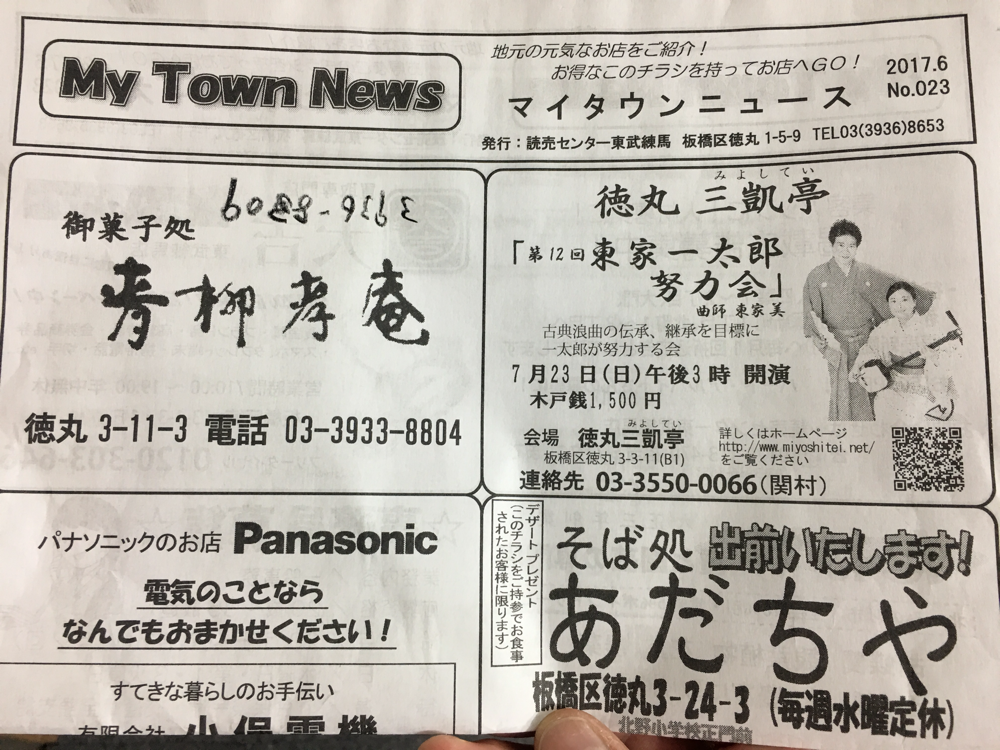 My Town News
地元の元気なお店をご紹介！
お得なこのチラシを持ってお店へGO！
マイタウンニュース
2017.6
No.023
発行：読売センター東武練馬 板橋区徳丸1-5-9 TEL03(3936)8653
御菓子処
青柳孝庵
徳丸 3-11-3 電話 03-3933-8804
みよしてい
徳丸 三凱亭
「第12回 東家一太郎
努力会」
曲師 東家美
古典浪曲の伝承、継承を目標に
一太郎が努力する会
7月23日(日)午後3時 開演
木戸銭1,500円
みよしてい
会場 徳丸三凱亭
板橋区徳丸3-3-11(B1)
詳しくはホームページ
http://www.miyoshitei.net/
をご覧ください
連絡先 03-3550-0066(関村)
パナソニックのお店 Panasonic
電気のことなら
なんでもおまかせください！
すてきな暮らしのお手伝い
有限会社 小俣電機
デザートプレゼント
(このチラシをご持参でお食事
されたお客様に限ります)
そば処 出前いたします!
あだちや
板橋区徳丸3-24-3 (毎週水曜定休)
北野小学校正門前